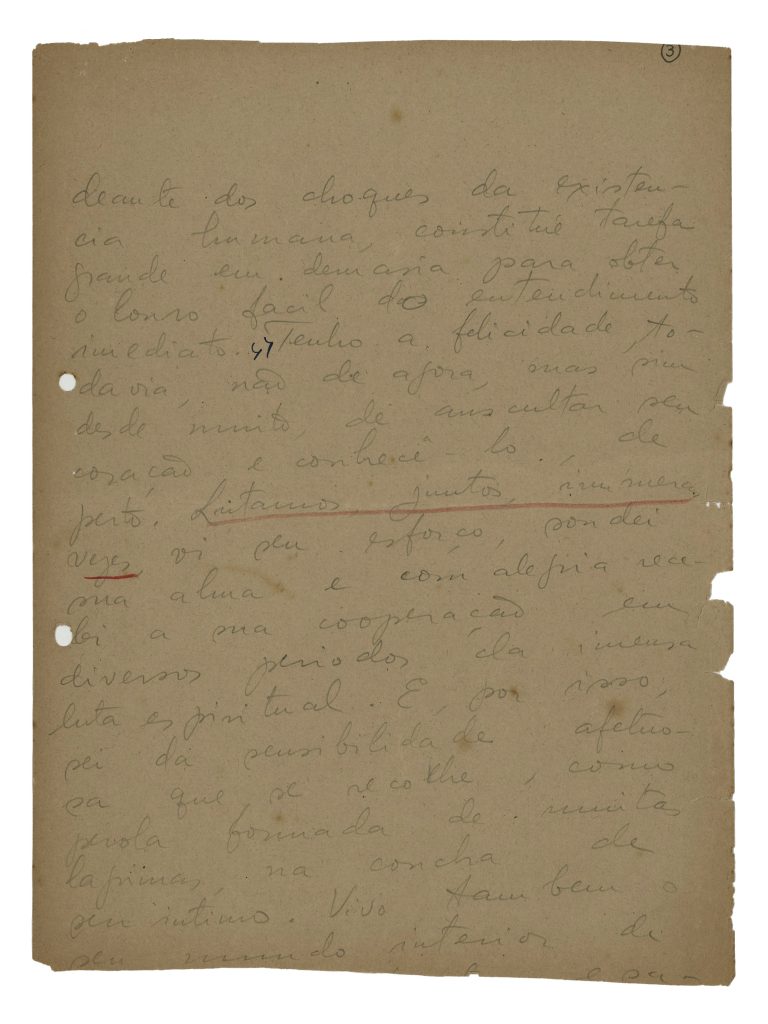 3
deante dos choques da existen-
cia humana, constitué tarefa
grande em demasia para obter
o louro facil do entendimento
imediato. "Tenho a felicidade, to-
davia, não de agora, mas sim
desde muito, de auscultar seu
coração e conhecê-lo, de
perto. Lutamos juntos, inumera
vezes, vi seu esforço, sondei
sua alma e com alegria rece-
bi a sua cooperação em
diversos periodos da imensa
luta espiritual. E, por isso,
sei da sensibilidade afetuo-
sa que se recolhe, como
perola formada de muitas
lagrimas, na concha de
seu intimo. Vivo tambem o
seu mundo interior de
esa-